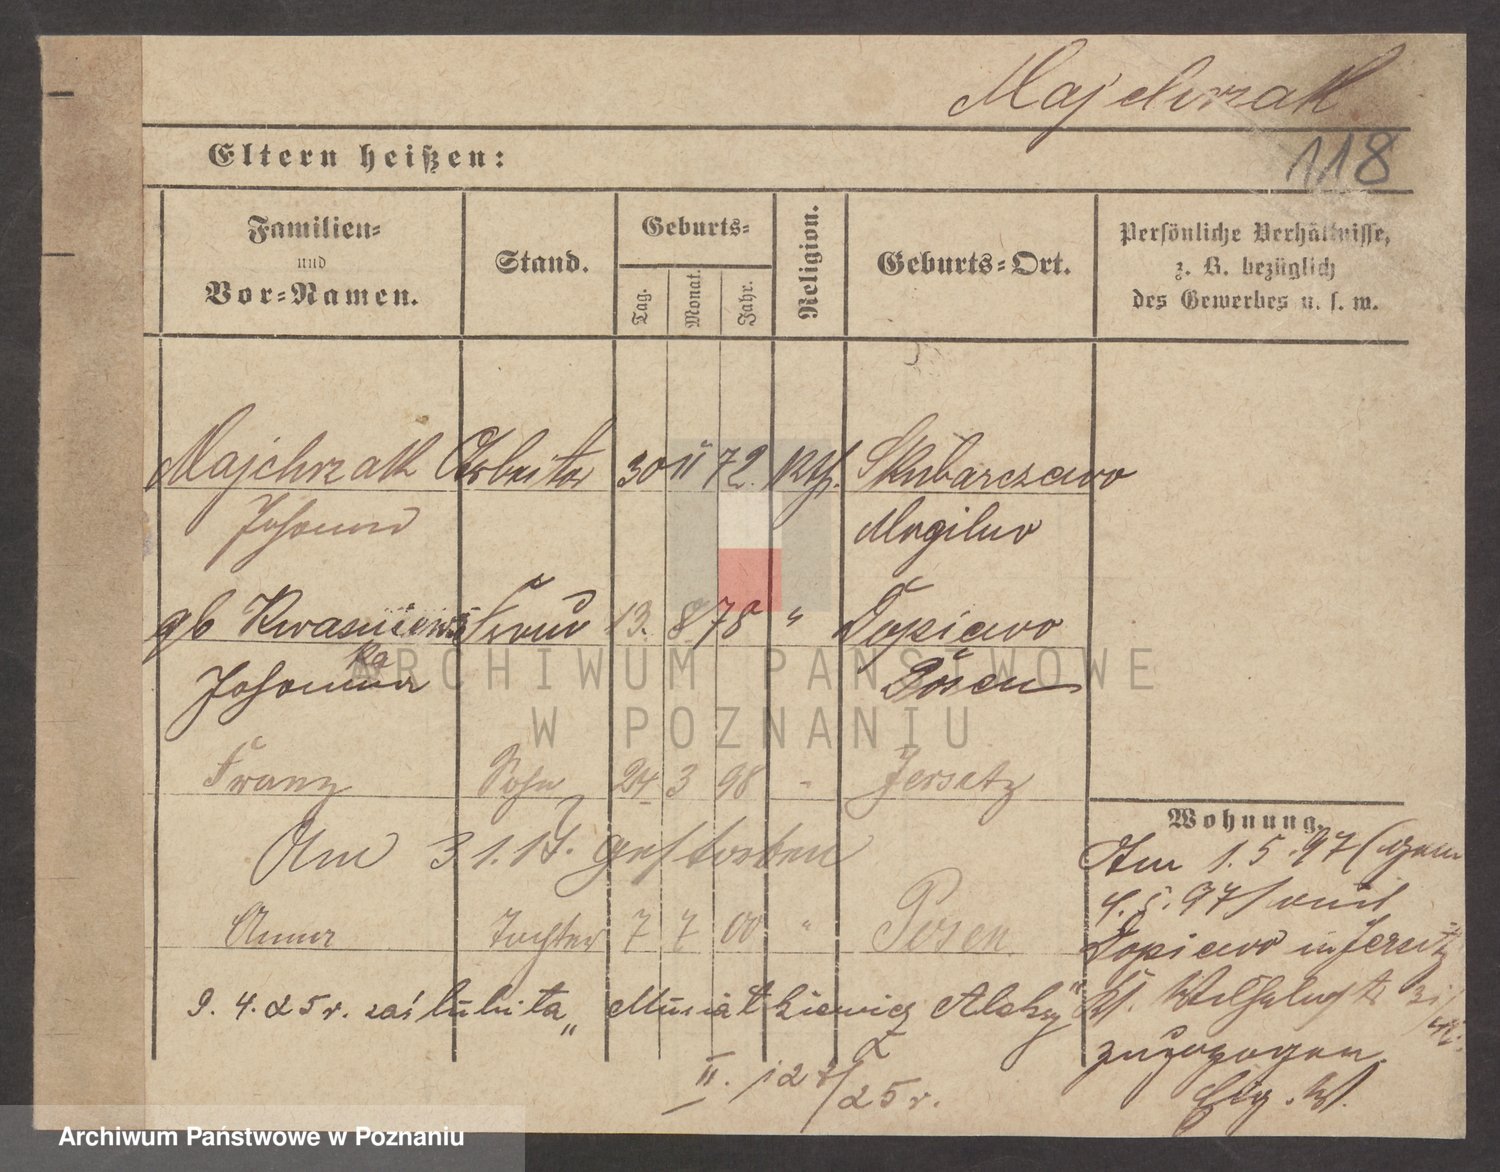 Majchrzak
118
Eltern heißen:
Familien- und Vor-Namen.
Stand.
Geburts-
Tag.
Monat.
Jahr.
Religion.
Geburts-Ort.
Persönliche Verhältnisse,
z. B. bezüglich
des Gewerbes u. s. w.
Majchrzak Arbeiter 30 11 72. Kth. Skubarczewo
Johann Mogilno
gb Kwasniews Frau 13. 8 78 " Dopiewo
ka
Johanna Posen
Franz Sohn 24 3 98 " Jersitz
Am 31.1. gestorben
Anna Tochter 7 7 00 " Posen
9. 4. 25 r. zaślubiła
II. 127/25 r.
Wohnung.
Am 1. 5. 97 (gem
4. 5. 97) von
Dopiewo in Jersitz
zugezogen.
ARCHIWUM PAŃSTWOWE
W POZNANIU
Archiwum Państwowe w Poznaniu